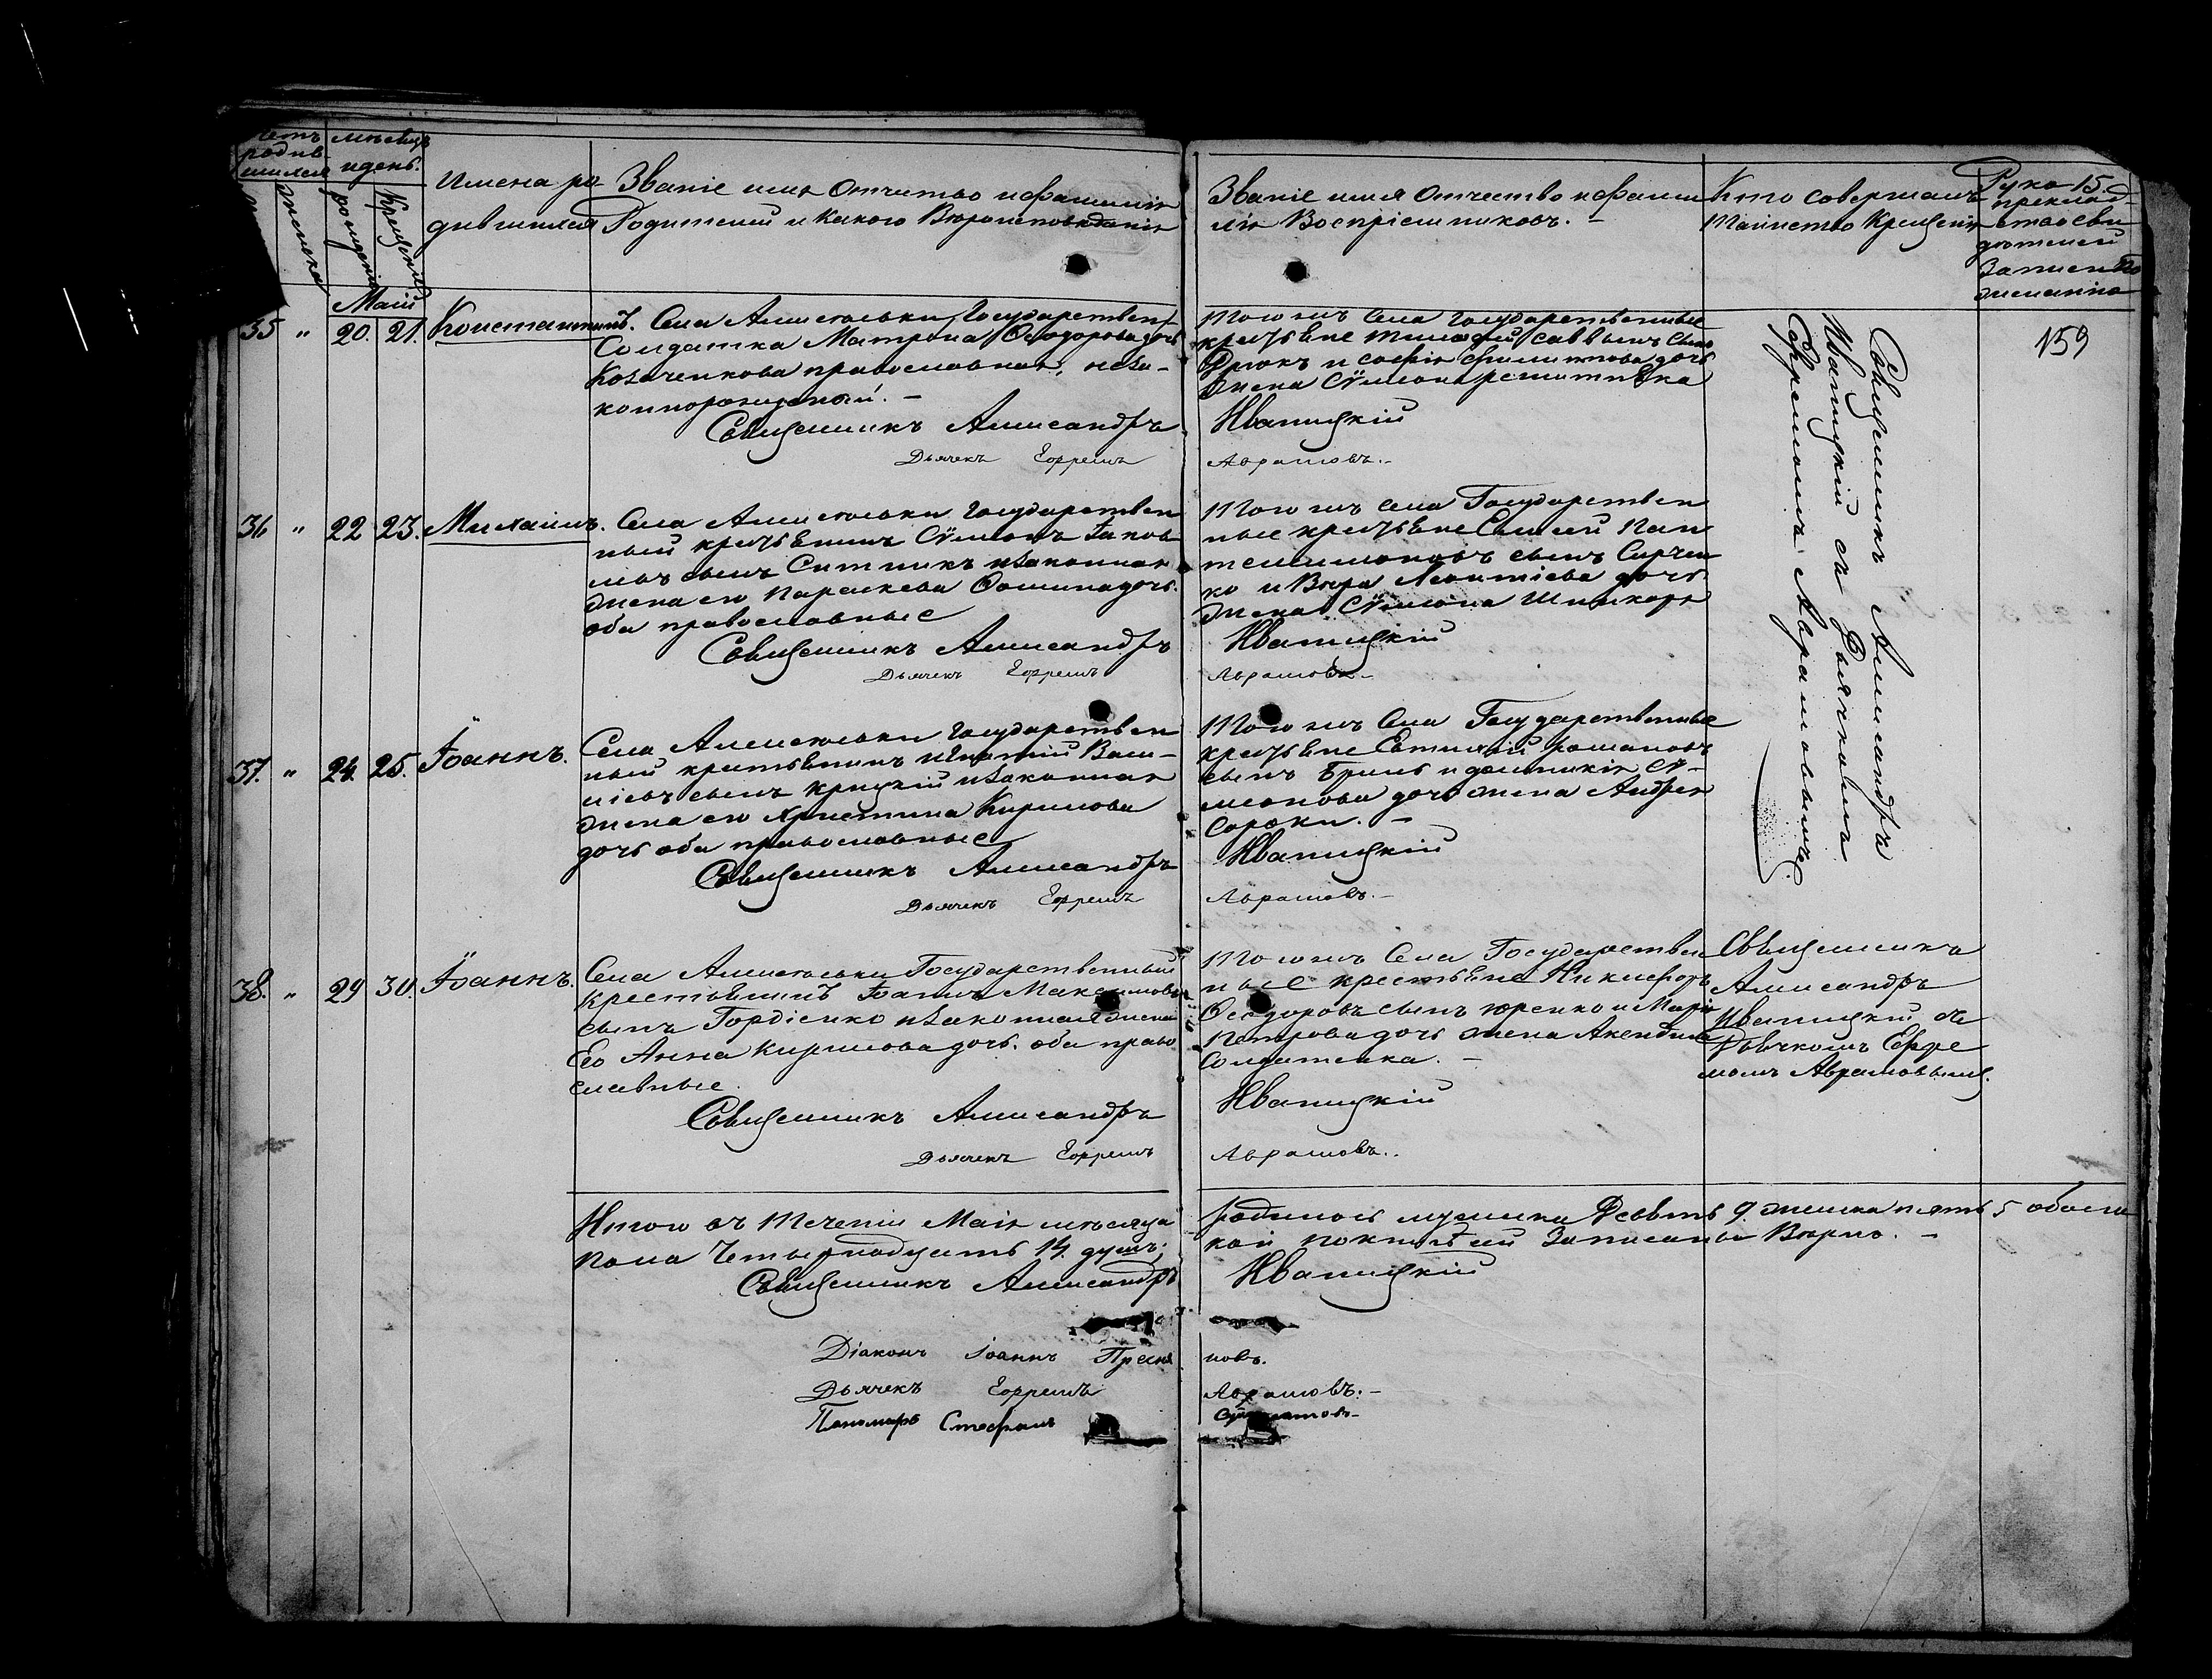 Счетъ родив-
шихся
женска
мѣсяцъ
и день.
рожденія
Крещенія
Имена ро
дившихся
Званіе имя Отчество и фамилія
Родителей и Какого Вѣроисповѣданія
Званіе имя Отчество и фами
лія Воспріемниковъ. –
Кто совершалъ
Таинство Крещенія
Руко 15.
преклад-
ство сви
дѣтелей
Записи по
желанію
Маій
35 " 20. 21. Константинъ.
Села Алексѣевки Государствен-
Солдатка Матрона Ѳеодорова дочь
Козаченкова православная, неза-
коннорожденный. –
Священникъ Александръ
Дьячекъ Ефремъ
Того жъ Села Государственные
крестьяне Тимофей Саввинъ сынъ
Дрюкъ и Софія Филиппова дочь
жена Сѵмеона решитника
Иваницкій
Аврамовъ. –
159
Священникъ Александръ
Иваницкій съ Дьячкомъ
Ефремомъ Аврамовымъ.
36 " 22 23. Михаилъ.
Села Алексѣевки Государствен
ный крестьянинъ Сѵмеонъ Іаков
левъ сынъ Ситникъ и Законная
жена его Параскева Ѳомина дочь.
оба православные
Священникъ Александръ
Дьячекъ Ефремъ
Того жъ села Государствен
ные крестьяне Пан
телимоновъ сынъ
ко и Вѣра Леонтіева дочь
жена Сѵмеона Шишкаря
Иваницкій
Аврамовъ –
37. " 24. 25. Іоаннъ.
Села Алексѣевки Государствен
ный крестьянинъ Игнатій Васи-
ліевъ сынъ Крицкій и Законная
жена его Христина Кирилова
дочь оба православные
Священникъ Александръ
Дьячекъ Ефремъ
Того жъ Села Государственные
крестьяне Евтихій романовъ
сынъ Бриль и домникія Сѵ-
меонова дочь жена Андрея
Сороки. –
Иваницкій
Аврамовъ. –
38. " 29 30. Іоаннъ.
Села Алексѣевки Государственный
Крестьянинъ Іоаннъ Максимовъ
сынъ Гордіенко и Законная жена
Его Анна Кирилова дочь. оба право
славные.
Священникъ Александръ
Дьячекъ Ефремъ
Того жъ Села Государствен
ные крестьяне Никифоръ
Ѳеодоровъ сынъ юренко и Марія
Петрова дочь жена
Солдатенка. –
Иваницкій
Аврамовъ..
Священникъ
Александръ
Иваницкій съ
Дьячкомъ Ефре
момъ Аврамовымъ.
Итого въ Теченіи Маія мѣсяца
родилось мужеска Девять 9. женска пять 5 обоего
пола Четырнадцать 14. душъ,
кои по Записаны Вѣрно. –
Священникъ Александръ
Иваницкій
Діаконъ Іоаннъ Пресня
ковъ.
Дьячекъ Ефремъ
Аврамовъ. –
Пономарь Стефанъ